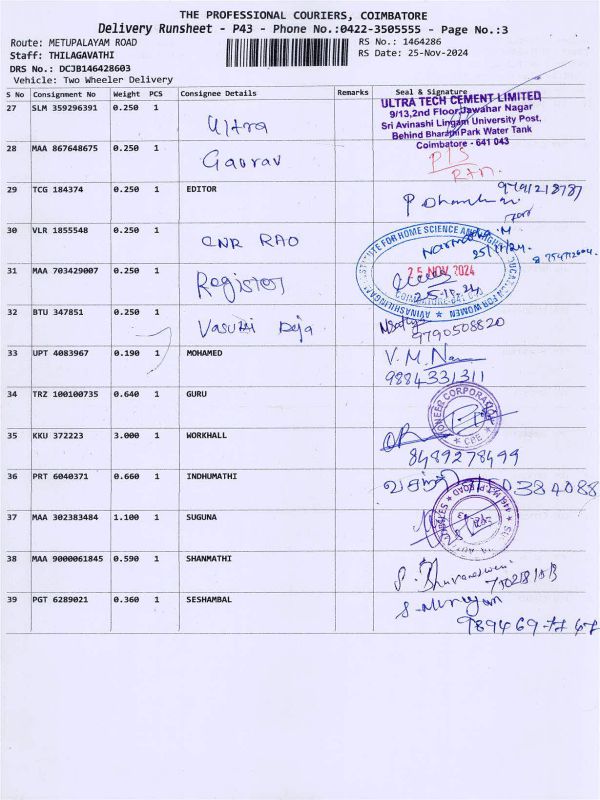 THE PROFESSIONAL COURIERS, COIMBATORE
Delivery Runsheet - P43 - Phone No.:0422-3505555 - Page No.:3
Route: METUPALAYAM ROAD RS No.: 1464286
Staff: THILAGAVATHI RS Date: 25-Nov-2024
DRS No.: DCJB146428603
Vehicle: Two Wheeler Delivery
S No Consignment No Weight PCS Consignee Details Remarks Seal & Signature
27 SLM 359296391 0.250 1 Ultra
ULTRA TECH CEMENT LIMITED
9/13,2nd Floor,Jawahar Nagar
Sri Avinashi Lingam University Post,
Behind Bharathi Park Water Tank
Coimbatore - 641 043
28 MAA 867648675 0.250 1 Gaurav
29 TCG 184374 0.250 1 EDITOR
9791218787
30 VLR 1855548 0.250 1 CNR RAO
25/11/24
31 MAA 703429007 0.250 1 Register
25 NOV 2024
25-11-24
32 BTU 347851 0.250 1
9790508820
33 UPT 4083967 0.190 1 MOHAMED
9884331311
34 TRZ 100100735 0.640 1 GURU
PIONEER CORPORATION
CBE
35 KKU 372223 3.000 1 WORKHALL
8489278499
36 PRT 6040371 0.660 1 INDHUMATHI
37 MAA 302383484 1.100 1 SUGUNA
38 MAA 9000061845 0.590 1 SHANMATHI
39 PGT 6289021 0.360 1 SESHAMBAL